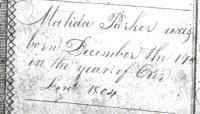 Matilda Parker was
born December the 17
in the year of Our
Lord 1804